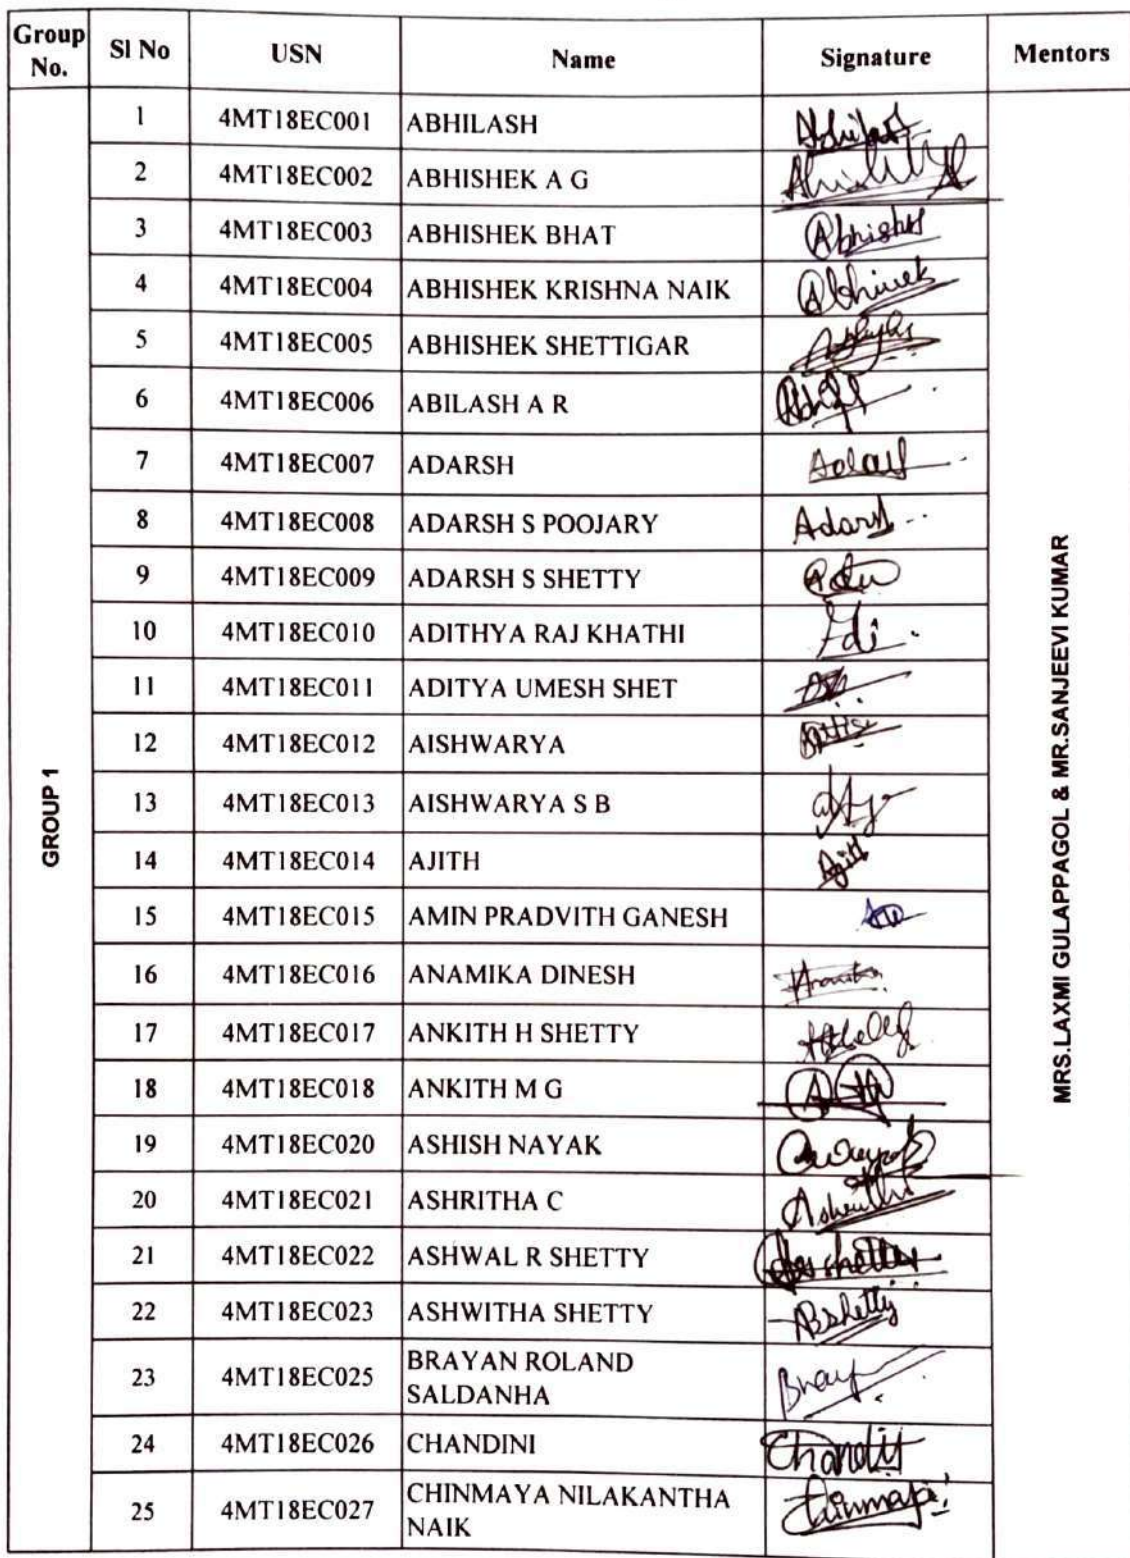 Group No. Sl No USN Name Signature Mentors
GROUP 1
1 4MT18EC001 ABHILASH
2 4MT18EC002 ABHISHEK A G
3 4MT18EC003 ABHISHEK BHAT
4 4MT18EC004 ABHISHEK KRISHNA NAIK
5 4MT18EC005 ABHISHEK SHETTIGAR
6 4MT18EC006 ABILASH A R
7 4MT18EC007 ADARSH
8 4MT18EC008 ADARSH S POOJARY Adarsh
9 4MT18EC009 ADARSH S SHETTY
10 4MT18EC010 ADITHYA RAJ KHATHI
11 4MT18EC011 ADITYA UMESH SHET
12 4MT18EC012 AISHWARYA
13 4MT18EC013 AISHWARYA S B
14 4MT18EC014 AJITH Ajith
15 4MT18EC015 AMIN PRADVITH GANESH
16 4MT18EC016 ANAMIKA DINESH
17 4MT18EC017 ANKITH H SHETTY
18 4MT18EC018 ANKITH M G
19 4MT18EC020 ASHISH NAYAK
20 4MT18EC021 ASHRITHA C
21 4MT18EC022 ASHWAL R SHETTY
22 4MT18EC023 ASHWITHA SHETTY
23 4MT18EC025 BRAYAN ROLAND
SALDANHA
24 4MT18EC026 CHANDINI
25 4MT18EC027 CHINMAYA NILAKANTHA
NAIK
MRS.LAXMI GULAPPAGOL & MR.SANJEEVI KUMAR